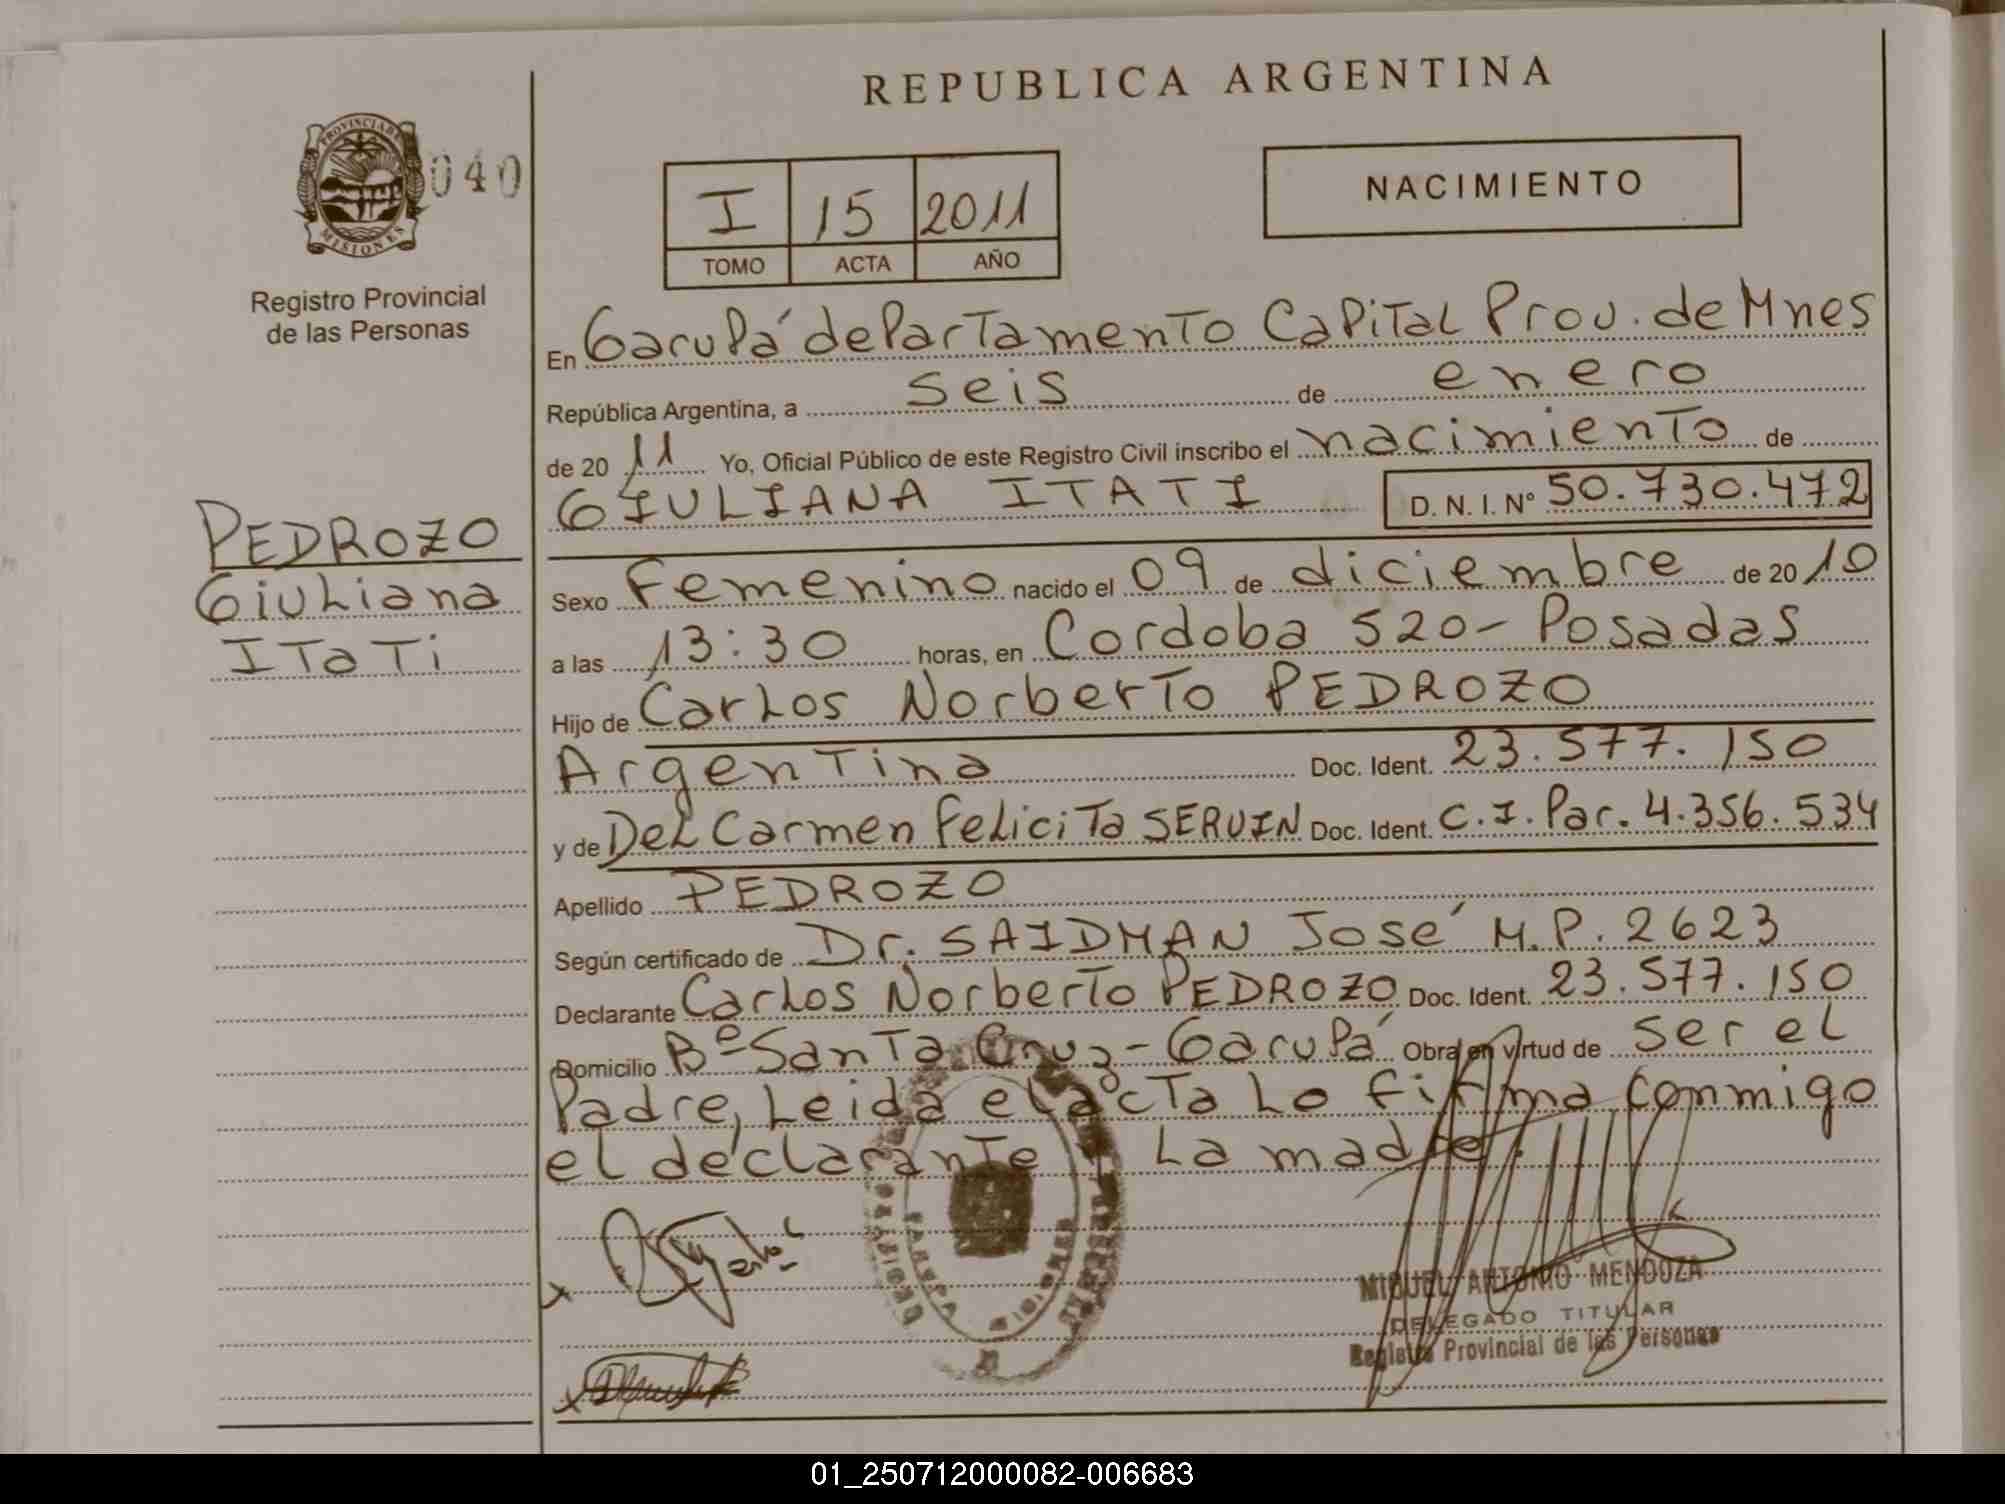 REPUBLICA ARGENTINA
PROVINCIA DE
MISIONES
040
Registro Provincial
de las Personas
I 15 2011
TOMO ACTA AÑO
NACIMIENTO
En Garupá departamento Capital Prov. de Mnes
República Argentina, a seis de enero
de 20 11 Yo, Oficial Público de este Registro Civil inscribo el nacimiento de
GIULIANA ITATI D. N. I. Nº 50.730.472
PEDROZO
Giuliana
Itati
Sexo Femenino nacido el 09 de diciembre de 20 10
a las 13:30 horas, en Cordoba 520 - Posadas
Hijo de Carlos Norberto PEDROZO
Argentina Doc. Ident. 23.577.150
y de Del Carmen Felicita SERVIN Doc. Ident. C.I. Par. 4.356.534
Apellido PEDROZO
Según certificado de Dr. SAIDMAN José M.P. 2623
Declarante Carlos Norberto PEDROZO Doc. Ident. 23.577.150
Domicilio Bº Santa Cruz - Garupá Obra en virtud de ser el
Padre, Leida el acta lo firma conmigo
el declarante y La madre.
MIGUEL ANTONIO MENDOZA
DELEGADO TITULAR
Registro Provincial de las Personas
01_250712000082-006683